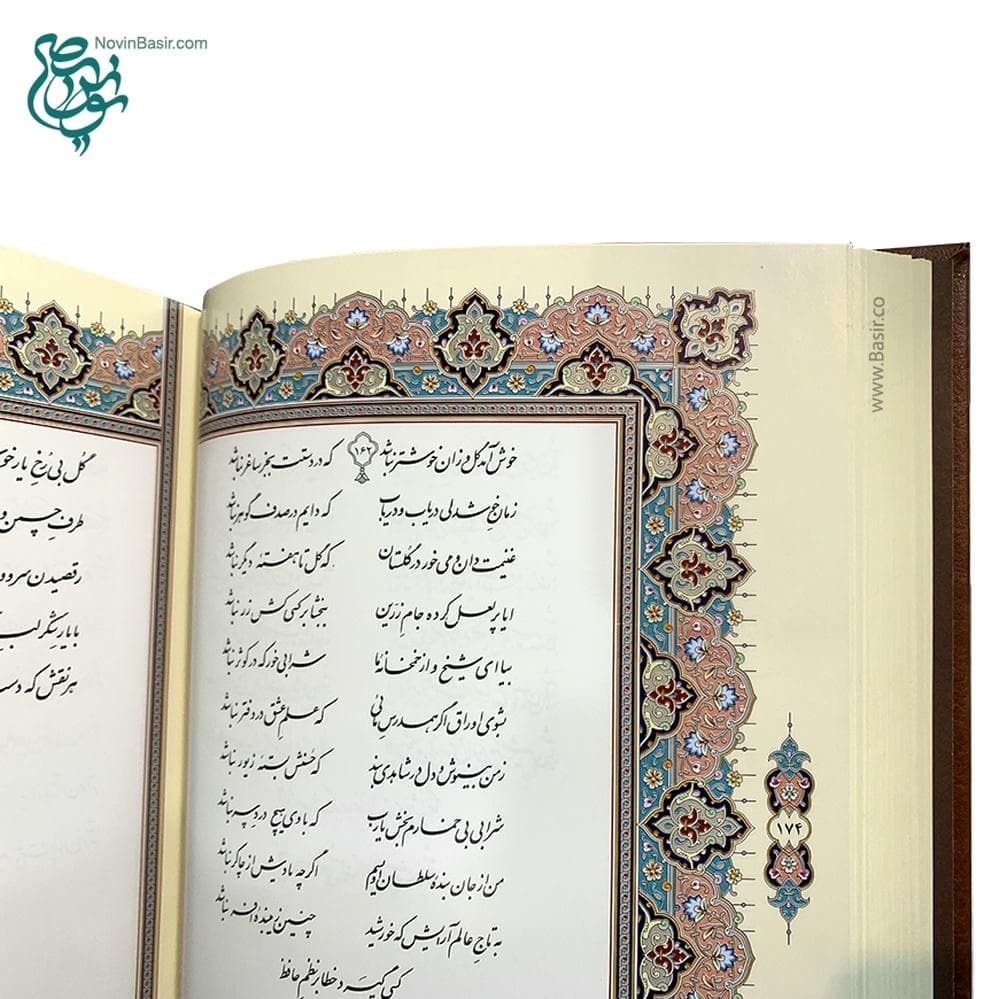 NovinBasir.com
www.Basir.co
۱۶۲
خوش آمد گل وزان خوشتر نباشد که در دستت بجز ساغر نباشد
زمان خوشدلی دریاب و دریاب که دایم در صدف گوهر نباشد
غنیمت دان و می خور در گلستان که گل تا هفتهٔ دیگر نباشد
ایا پر لعل کرده جام زرین ببخشا بر کسی کش زر نباشد
بیا ای شیخ و از خمخانهٔ ما شرابی خور که در کوثر نباشد
بشوی اوراق اگر همدرس مائی که علم عشق در دفتر نباشد
ز من بنیوش و دل در شاهدی بند که حسنش بستهٔ زیور نباشد
شرابی بی خمارم بخش یارب که با وی هیچ درد سر نباشد
من از جان بندهٔ سلطان اویسم اگرچه یادش از چاکر نباشد
به تاج عالم آرایش که خورشید چنین زیبندهٔ افسر نباشد
کسی گیرد خطا بر نظم حافظ
۱۷۴
گل بی رخ یار خوش
طرف چمن و
رقصیدن سرو و
با یار شکر لب
هر نقش که دست